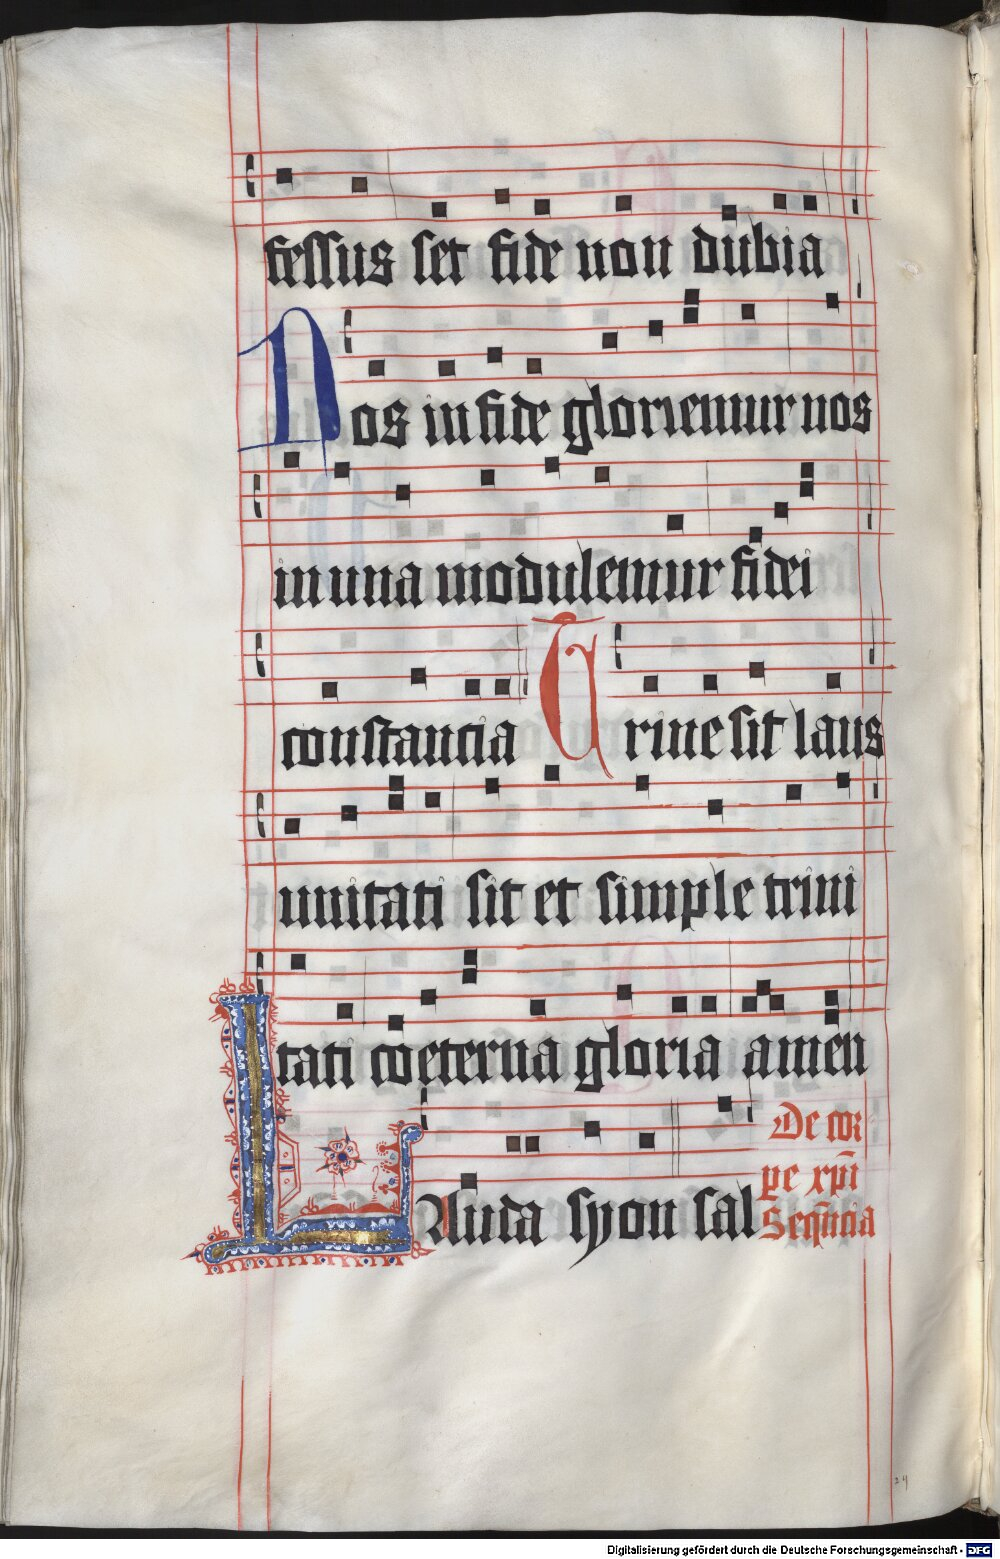 fessus set fide non dubia
Nos in fide gloriemur nos
in una modulemur fidei
constancia Trine sit laus
unitati sit et simple trini
tati coeterna gloria amen
De cor
pe xp̄i
Seqn̄cia
Lauda syon sal
24
Digitalisierung gefördert durch die Deutsche Forschungsgemeinschaft - DFG